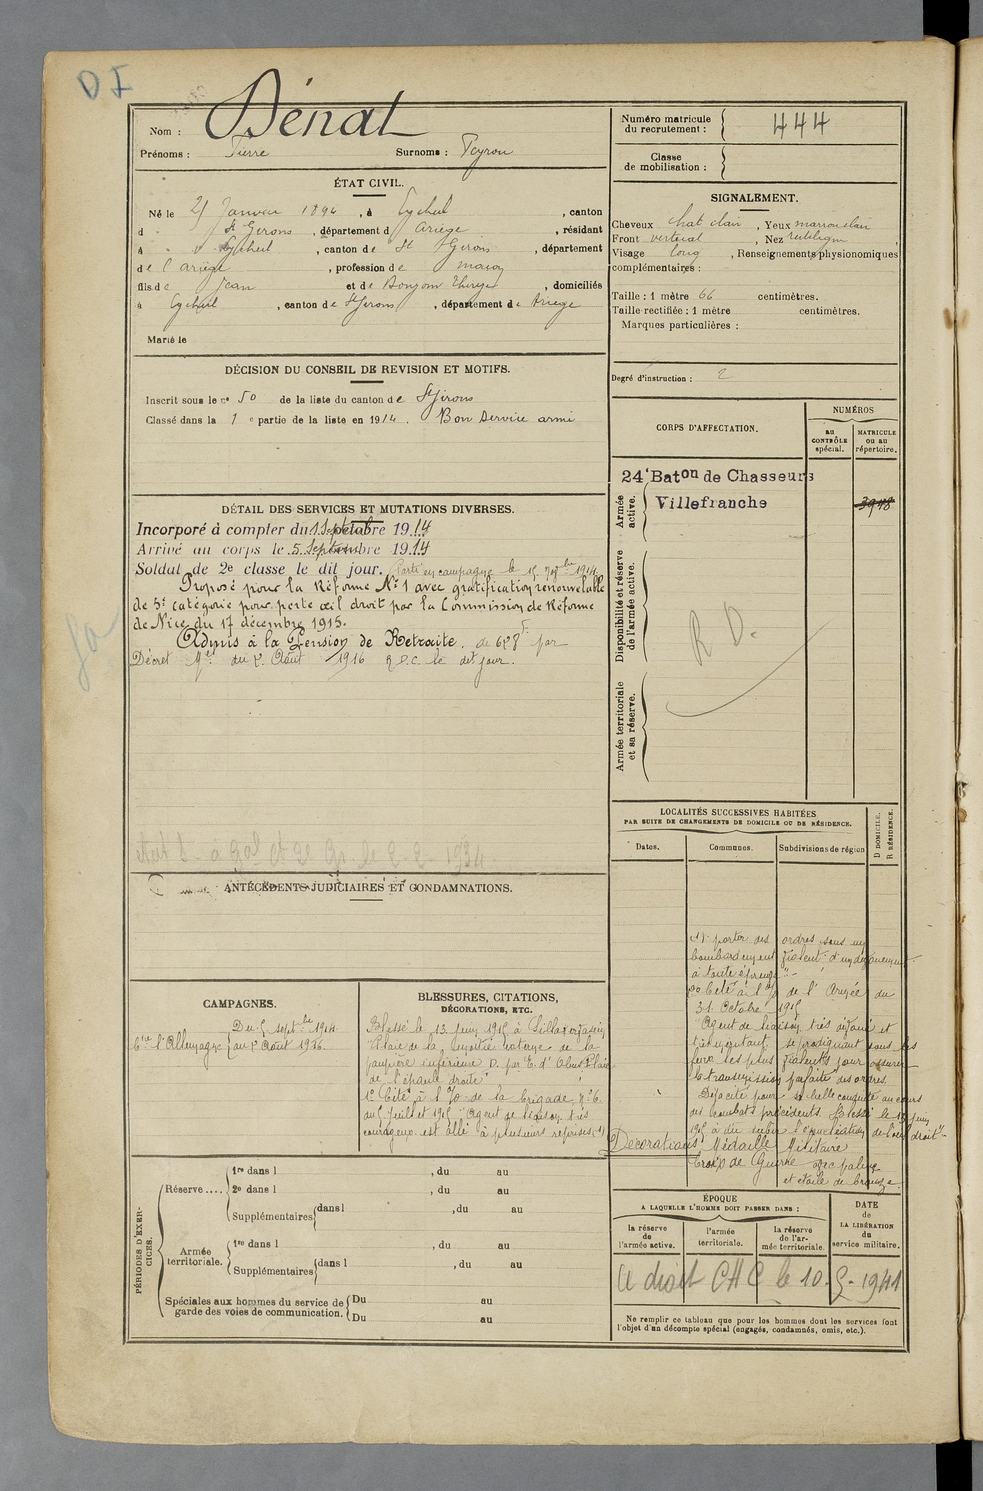 DI
Nom : Dénat
Prénoms : Pierre Surnoms : Peyrou
Numéro matricule du recrutement : 444
Classe de mobilisation :
ÉTAT CIVIL.
Né le Janvier 1894, à Eycheil, canton
d St Girons, département d Ariège, résidant
à Eycheil, canton de St Girons, département
de l'Ariège, profession de maçon
fils de Jean et de Bonjom, domiciliés
à Eycheil, canton de St Girons, département de Ariège
Marié le
SIGNALEMENT.
Cheveux chat clair, Yeux marron clair
Front vertical, Nez rectiligne
Visage long, Renseignements physionomiques
complémentaires :
Taille : 1 mètre 66 centimètres.
Taille rectifiée : 1 mètre centimètres.
Marques particulières :
Degré d'instruction : 2
DÉCISION DU CONSEIL DE REVISION ET MOTIFS.
Inscrit sous le n° 50 de la liste du canton de St Girons
Classé dans la 1e partie de la liste en 1914. Bon service armé
CORPS D'AFFECTATION.
NUMÉROS
au CONTRÔLE spécial.
MATRICULE ou au répertoire.
Armée active.
24e Baton de Chasseurs
Villefranche
3948
Disponibilité et réserve de l'armée active.
R D.
Armée territoriale et sa réserve.
DÉTAIL DES SERVICES ET MUTATIONS DIVERSES.
Incorporé à compter du 1 Septembre 1914
Arrivé au corps le 5 Septembre 1914
Soldat de 2e classe le dit jour. Parti en campagne le 1914
Proposé pour la Réforme N°1 avec gratification renouvelable
de 5e catégorie pour perte œil droit par la Commission de Réforme
de Nice du 17 décembre 1915.
Admis à la Pension de Retraite. de 628f par
Décret du 2 Août 1916 R.D.C. le dit jour.
1934
ANTÉCÉDENTS JUDICIAIRES ET CONDAMNATIONS.
LOCALITÉS SUCCESSIVES HABITÉES
PAR SUITE DE CHANGEMENTS DE DOMICILE OU DE RÉSIDENCE.
Dates. Communes. Subdivisions de région
D DOMICILE. R RÉSIDENCE.
CAMPAGNES.
Du 5 septbre 1914
Ctre l'Allemagne au 2 Août 1916
BLESSURES, CITATIONS, DÉCORATIONS, ETC.
Blessé le 13 Juin 1915 à
Plaie de la moitié externe de la
paupière inférieure D. par E. d'Obus. Plaie
de l'épaule droite
1° Cité à l'O de la Brigade n° 6
du 5 Juillet 1915 "Agent de liaison très
courageux est allé à plusieurs reprises (1)
(1) porter des ordres sous un
bombardement violent d'un dévouement
à toute épreuve".
2° Cité à l'O de l'Armée du
31 Octobre 1915
"Agent de liaison, très dévoué et
très méritant se prodiguant sous les
feux les plus violents pour assurer
la transmission parfaite des ordres.
Déjà cité pour sa belle conduite au cours
des combats précédents. Blessé le 13 Juin
1915 a dû subir l'énucléation de l'œil droit"
Décorations Médaille Militaire
Croix de Guerre avec palme
et étoile de bronze.
PÉRIODES D'EXERCICES.
Réserve....
1re dans l , du au
2e dans l , du au
Supplémentaires dans l , du au
Armée territoriale.
1re dans l , du au
Supplémentaires dans l , du au
Spéciales aux hommes du service de garde des voies de communication.
Du au
Du au
ÉPOQUE
A LAQUELLE L'HOMME DOIT PASSER DANS :
la réserve de l'armée active.
l'armée territoriale.
la réserve de l'armée territoriale.
DATE de LA LIBÉRATION du service militaire.
a droit CHC le 10-5-1941
Ne remplir ce tableau que pour les hommes dont les services font
l'objet d'un décompte spécial (engagés, condamnés, omis, etc.).